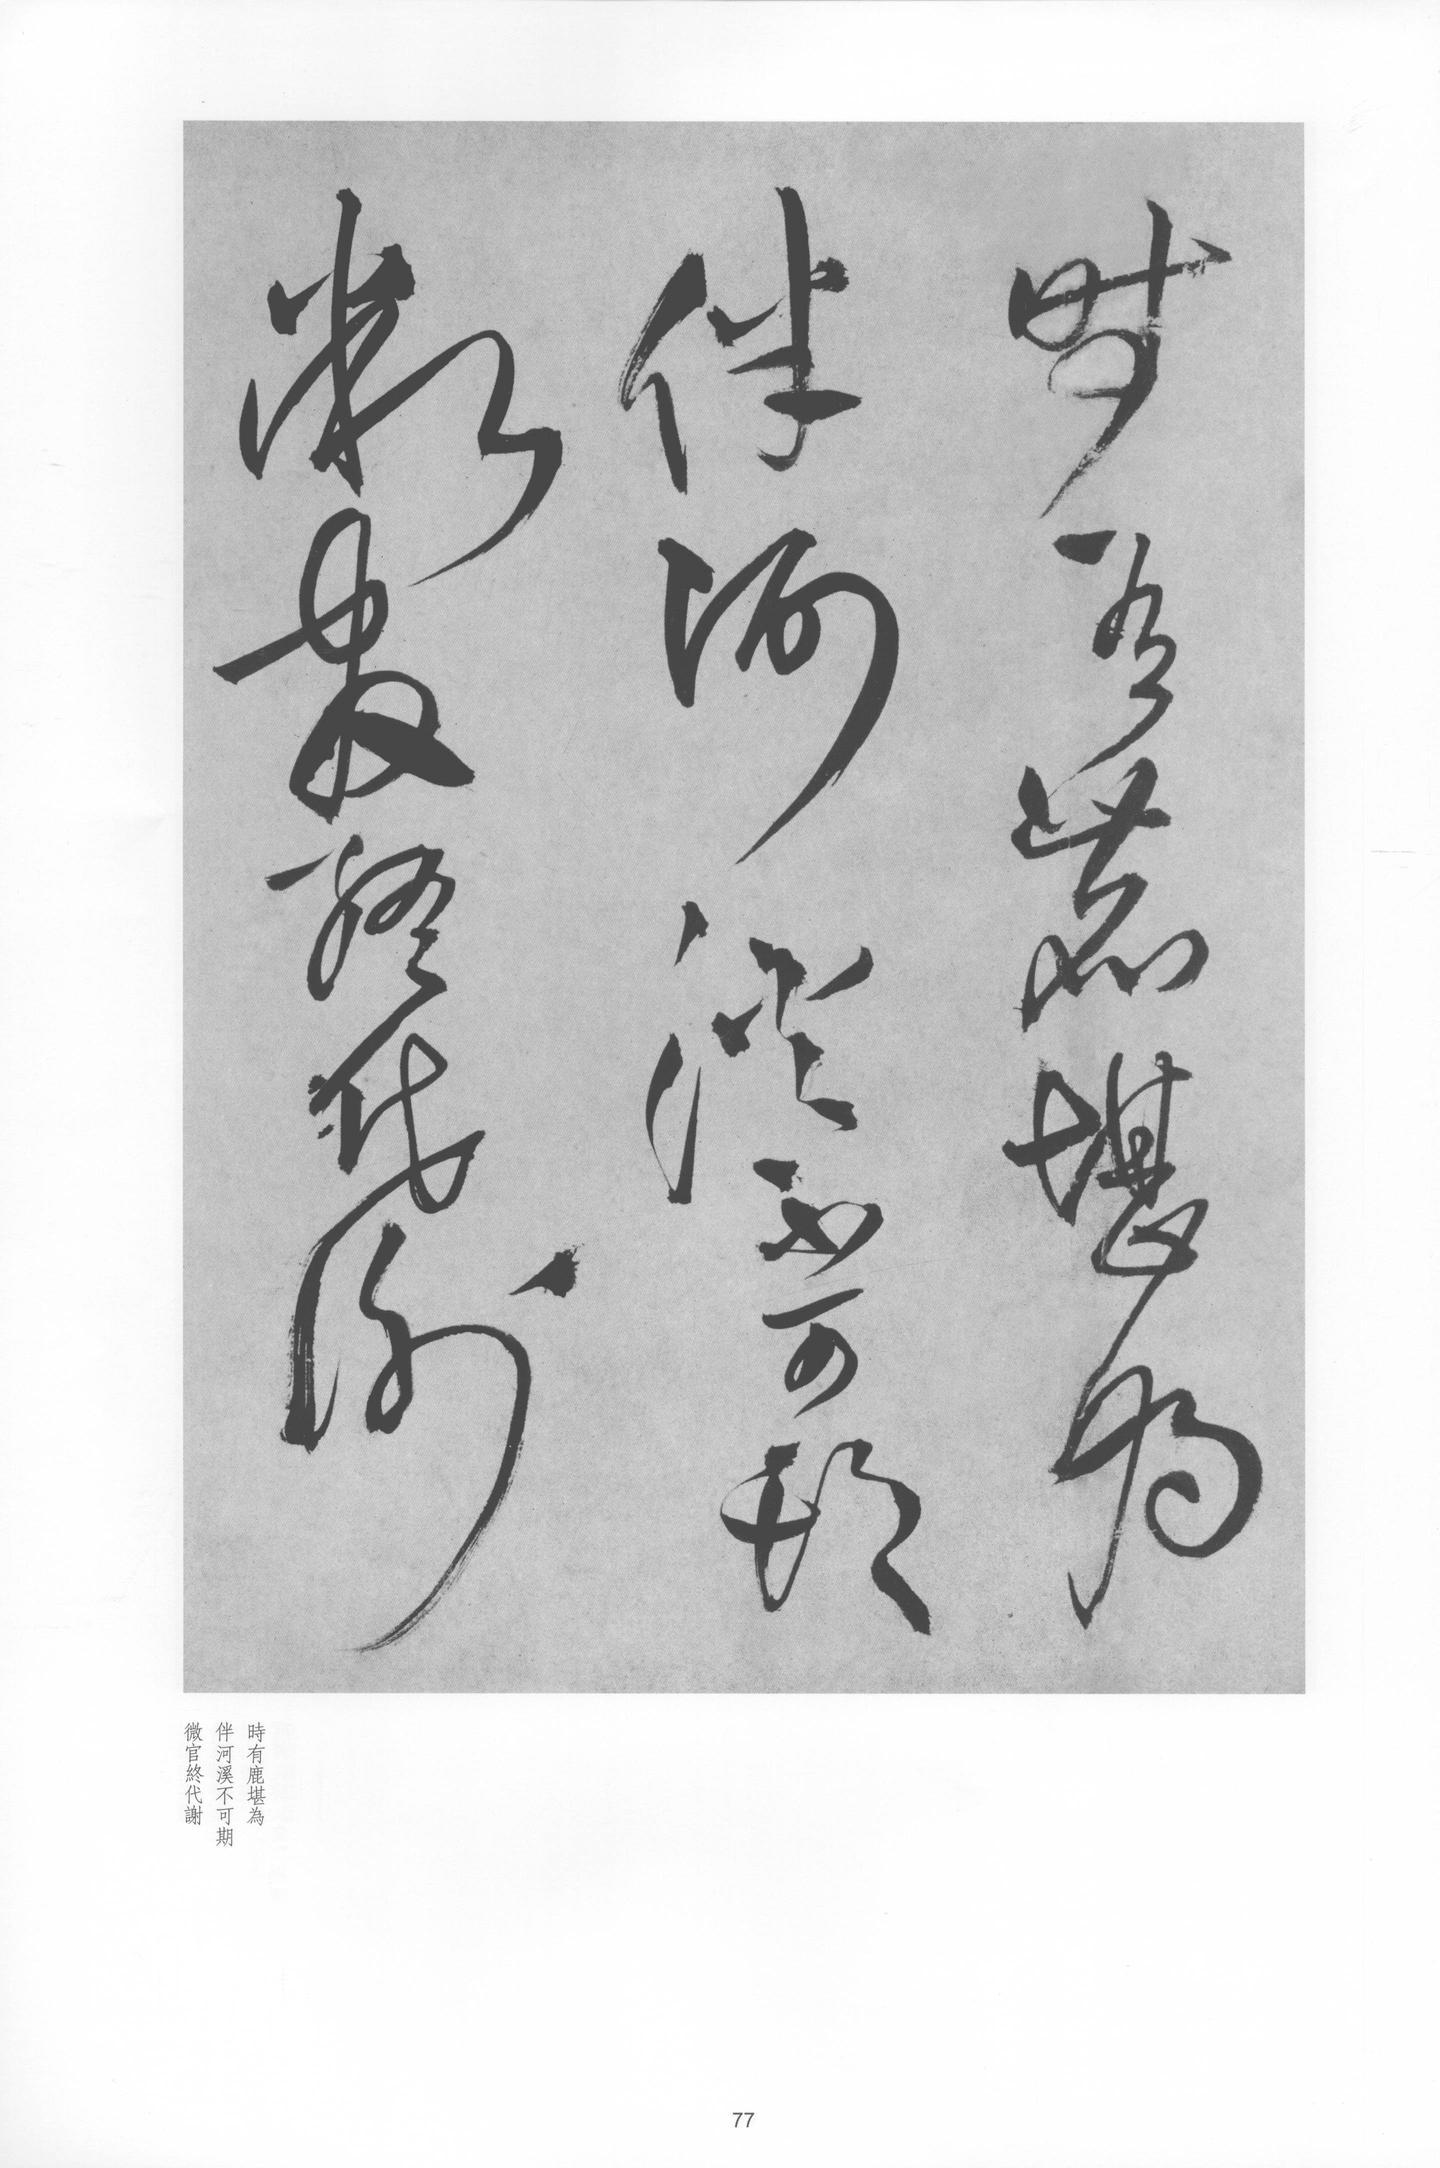 時有鹿堪為
伴河溪不可期
微官終代謝
時有鹿堪為
伴河溪不可期
微官終代謝
77